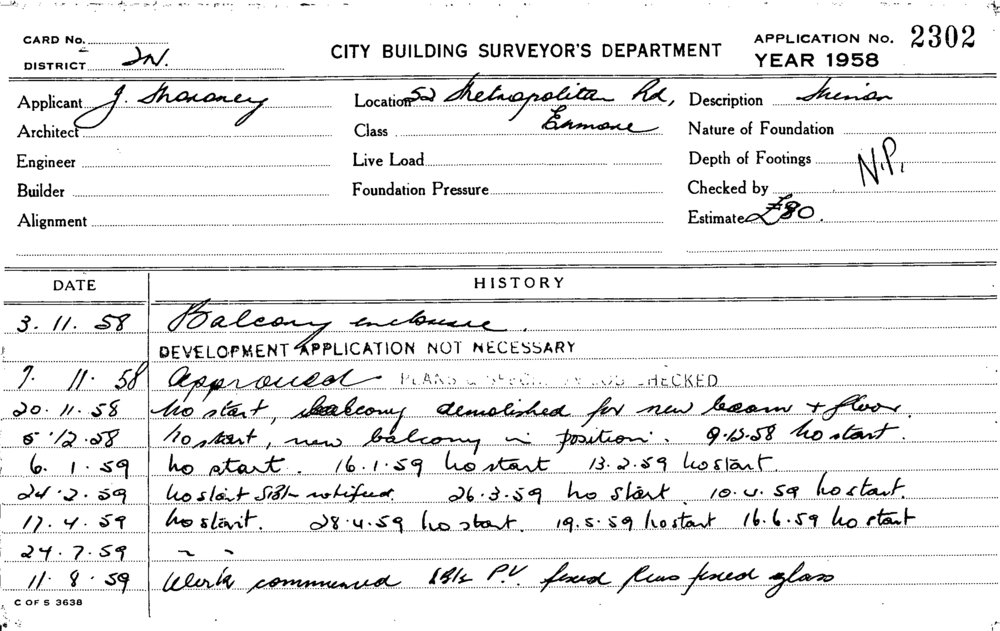 CARD No.
DISTRICT 2N.
CITY BUILDING SURVEYOR'S DEPARTMENT
APPLICATION No. 2302
YEAR 1958
Applicant J.
Location 52 Metropolitan Rd,
Enmore
Description
Architect
Class
Nature of Foundation
Engineer
Live Load
Depth of Footings
N.P.
Builder
Foundation Pressure
Checked by
Alignment
Estimate £80.
DATE HISTORY
3. 11. 58 Balcony enclosure.
DEVELOPMENT APPLICATION NOT NECESSARY
7. 11. 58 Approved PLANS & CHECKED
20. 11. 58 No start, balcony demolished for new beam + floor.
5. 12. 58 No start, new balcony in position. 9.12.58 No start.
6. 1. 59 No start. 16.1.59 No start 13.2.59 No start.
24. 2. 59 No start notified. 26.3.59 No start 10.4.59 No start.
17. 4. 59 No start. 28.4.59 No start. 19.5.59 No start 16.6.59 No start
24. 7. 59 ~ ~
11. 8. 59 Work commenced P.V. fixed plus fixed glass
C OF S 3638